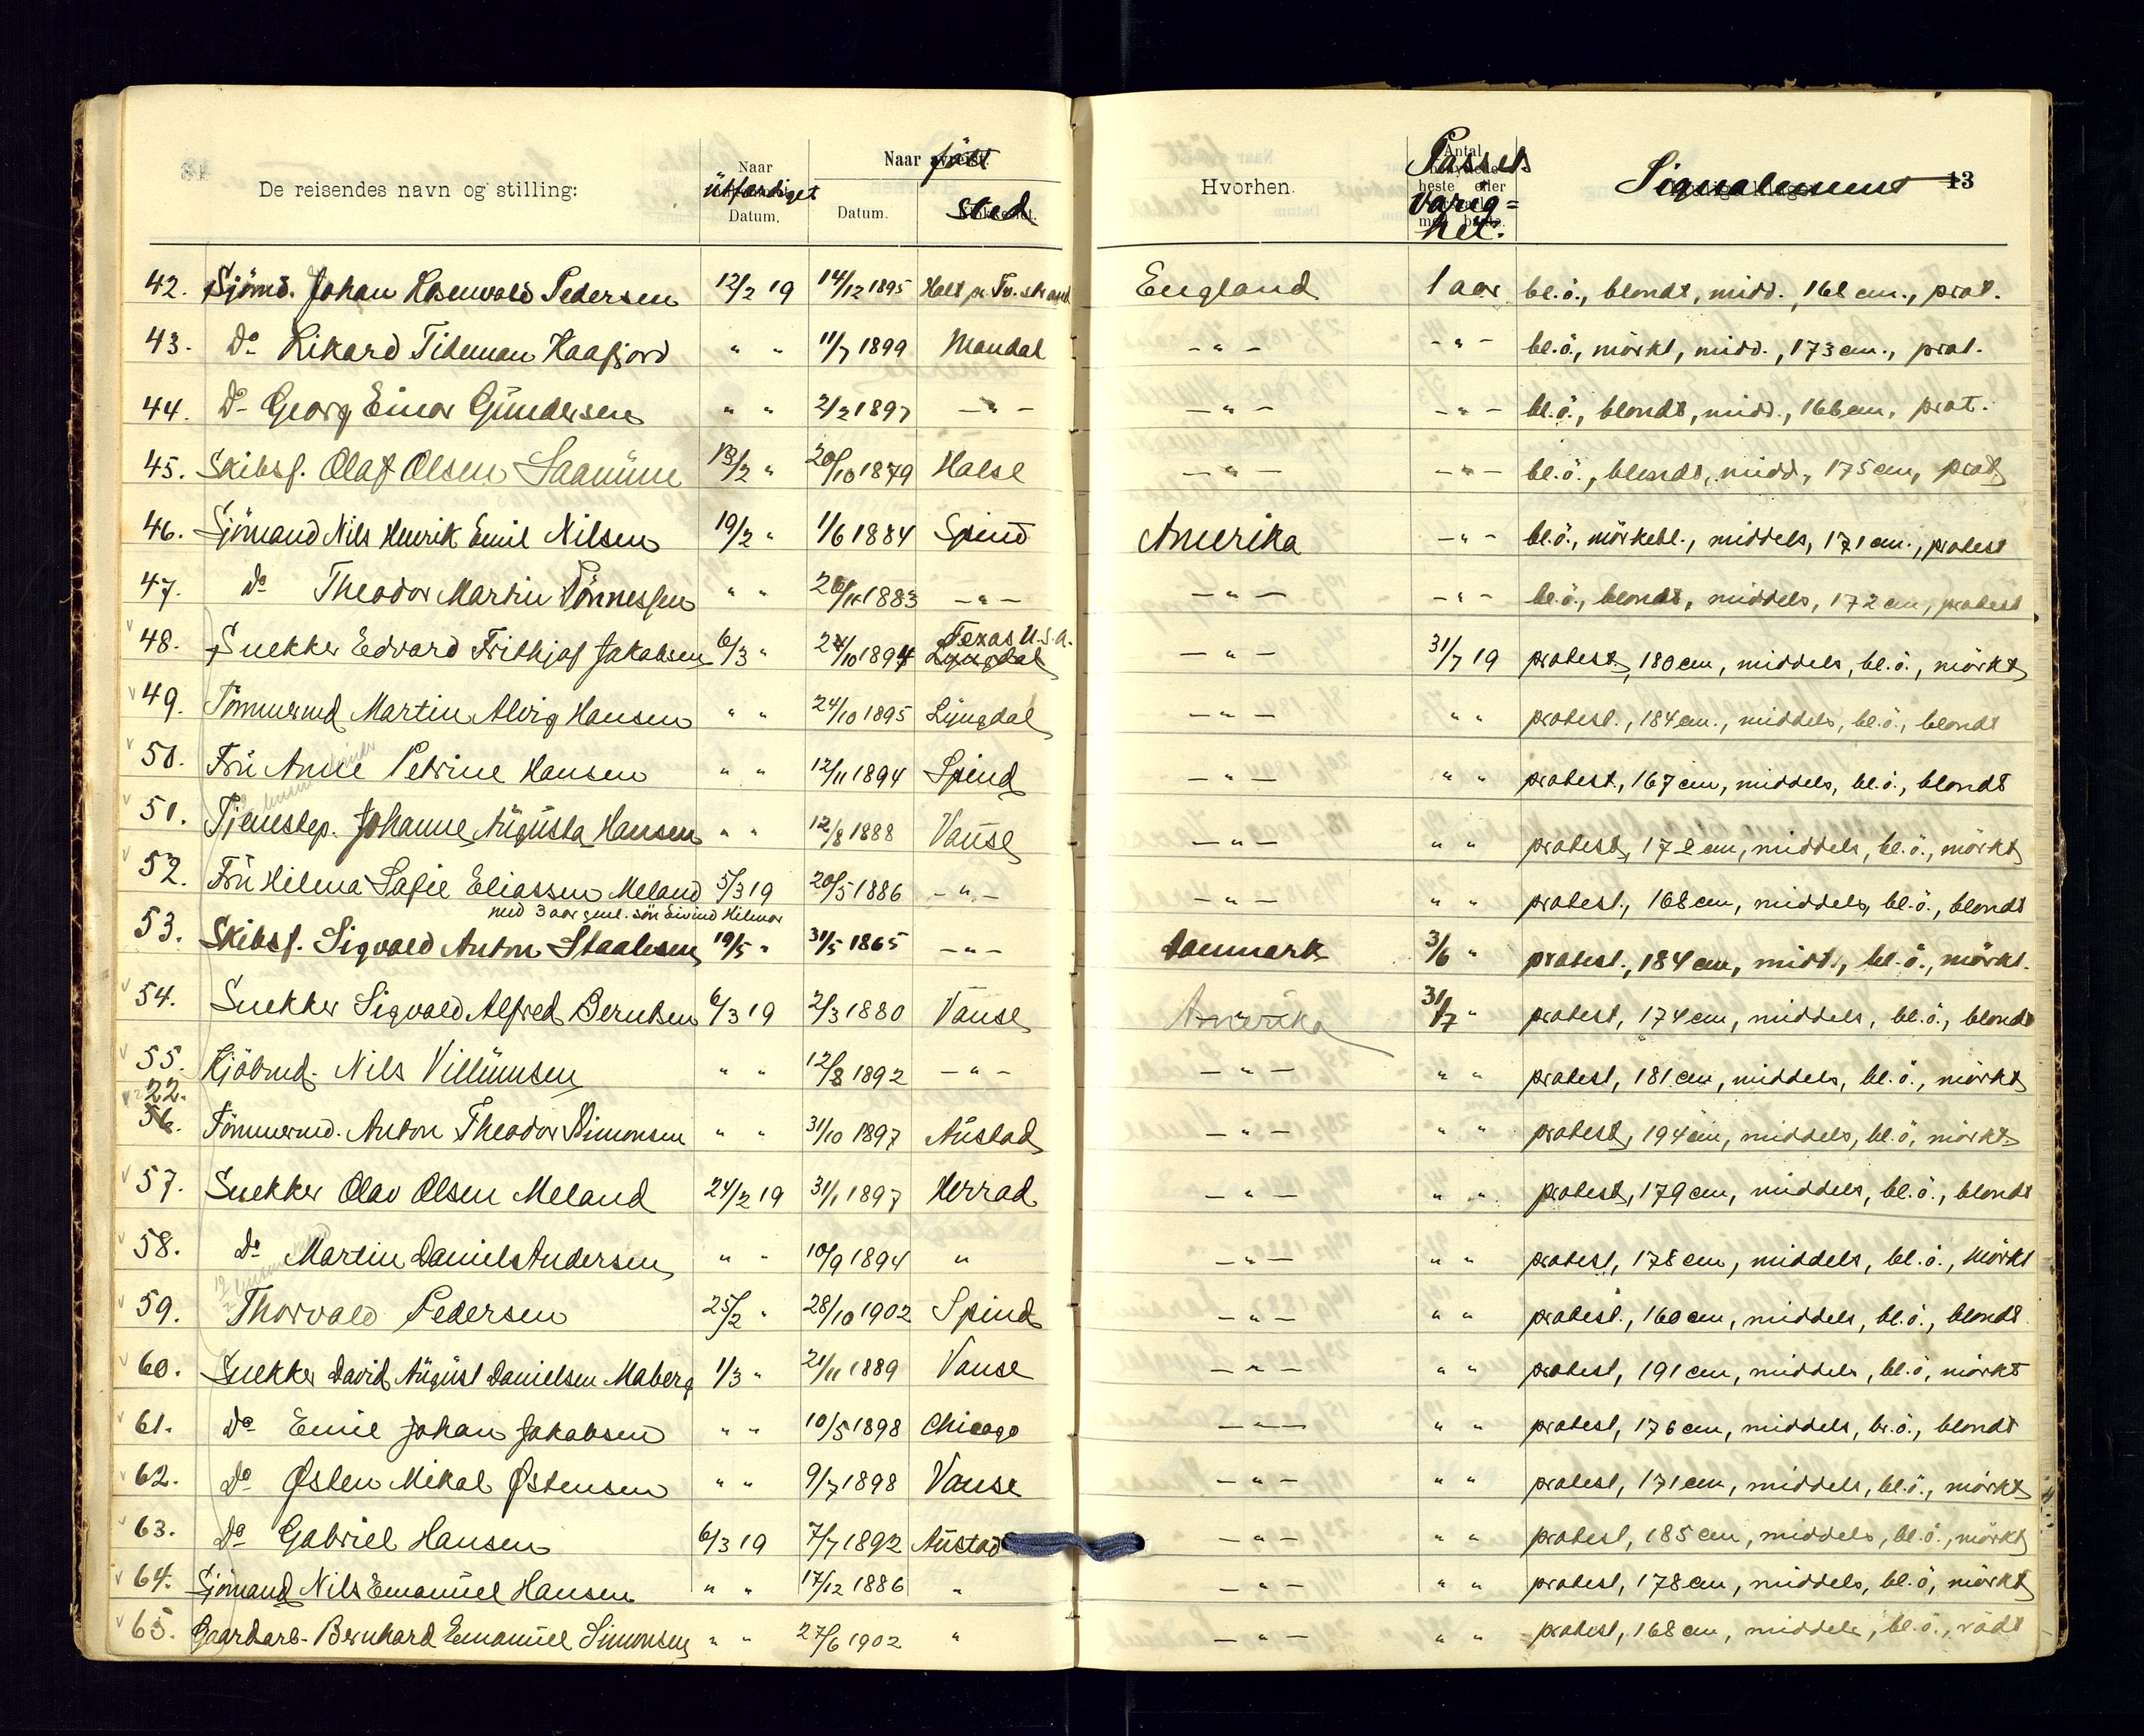 De reisendes navn og stilling: Naar ütfærdiget Datum. Naar født Datum. sted Hvorhen. Passets varig=het. Signalement 13
42. Sjömd. Johan Rosenvold Pedersen 12/2 19 14/12 1895 Holt pr Tv.strand England 1 aar bl.ö., blondt, midd., 168 cm., prot.
43. Do Rikard Tideman Haafjord " " 11/7 1899 Mandal - " - - " - bl.ö., mörkt, midd., 173 cm., prot.
44. Do Georg Einar Gündersen " " 2/2 1897 - " - - " - - " - bl.ö., blondt, midd., 166 cm, prot.
45. Skibsf. Olaf Olsen Saanüm 13/2 " 20/10 1879 Halse - " - - " - bl.ö., blondt, midd., 175 cm, prot
46. Sjömand Nils Henrik Emil Nilsen 19/2 " 1/6 1884 Spind Amerika - " - bl.ö., mörkebl., middels, 171 cm., protest
47. do Theodor Martin Tönnessen " " 1883 - " - - " - - " - bl.ö., blondt, middels, 172 cm, protest
48. Snekker Edvard Frithjof Jakobsen 6/3 " /10 1894 Texas U.S.A. Lyngdal - " - 31/7 19 protest., 180 cm, middels, bl.ö., mörkt
49. Tömmermd Martin Alvig Hansen " " 24/10 1895 Lÿngdal - " - " " protest., 184 cm., middels, bl.ö., blondt
50. Frü Anne Petrine Hansen " " 12/11 1894 Spind - " - " " protest., 167 cm, middels, bl.ö., blondt
51. Tjenestep. Johanne Aügüsta Hansen " " 12/8 1888 Vanse - " - " " protest, 172 cm, middels, bl.ö., mörkt
52. Frü Hilma Sofie Eliassen Meland 5/3 19 20/5 1886 - " - - " - " " protest., 168 cm, middels, bl.ö., blondt
med 3 aar gml. sön Eivind Hilmar
53. Skibsf. Sigvald Anton Staalesen 19/5 " 31/5 1865 - " - Danmark 3/6 " protest., 184 cm, midd., bl.ö., mörkt.
54. Snekker Sigvald Alfred Berntsen 6/3 19 2/3 1880 Vanse Amerika 31/7 " protest, 174 cm, middels, bl.ö., blondt
55. Kjöbmd. Nils Villümsen " " 12/8 1892 - " - - " - " " protest, 181 cm, middels, bl.ö., mörkt
22.
56. Tömmermd. Anton Theodor Simonsen " " 31/10 1897 Aüstad - " - " " protest, 194 cm, middels, bl.ö, mörkt
57. Snekker Olav Olsen Meland 24/2 19 31/1 1897 Herrad - " - " " protest, 179 cm, middels, bl.ö., blondt
58. do Martin Daniels Andersen " " 10/9 1894 " - " - " " protest, 178 cm, middels, bl.ö., mörkt
59. Thorvald Pedersen 25/2 " 28/10 1902 Spind - " - " " protest., 160 cm, middels, bl.ö., blondt
60. Snekker David Aügüst Danielsen Maberg 1/3 " 21/11 1889 Vanse - " - " " protest, 191 cm, middels, bl.ö, mörkt
61. do Emil Johan Jakobsen " " 10/5 1898 Chicago - " - " " protest, 176 cm, middels, br.ö., blondt
62. do Østen Mikal Østensen " " 9/7 1898 Vanse - " - " " protest, 171 cm, middels, bl.ö., mörkt
63. do Gabriel Hansen 6/3 19 7/7 1892 Aüstad - " - " " protest, 185 cm, middels, bl.ö., mörkt
64. Sjömand Nils Emanüel Hansen " " 17/12 1886 " - " - " " protest, 178 cm, middels, bl.ö, mörkt
65. Gaardarb. Bernhard Emanüel Simonsen " " 27/6 1902 " - " - " " protest, 168 cm, middels, bl.ö., rödt